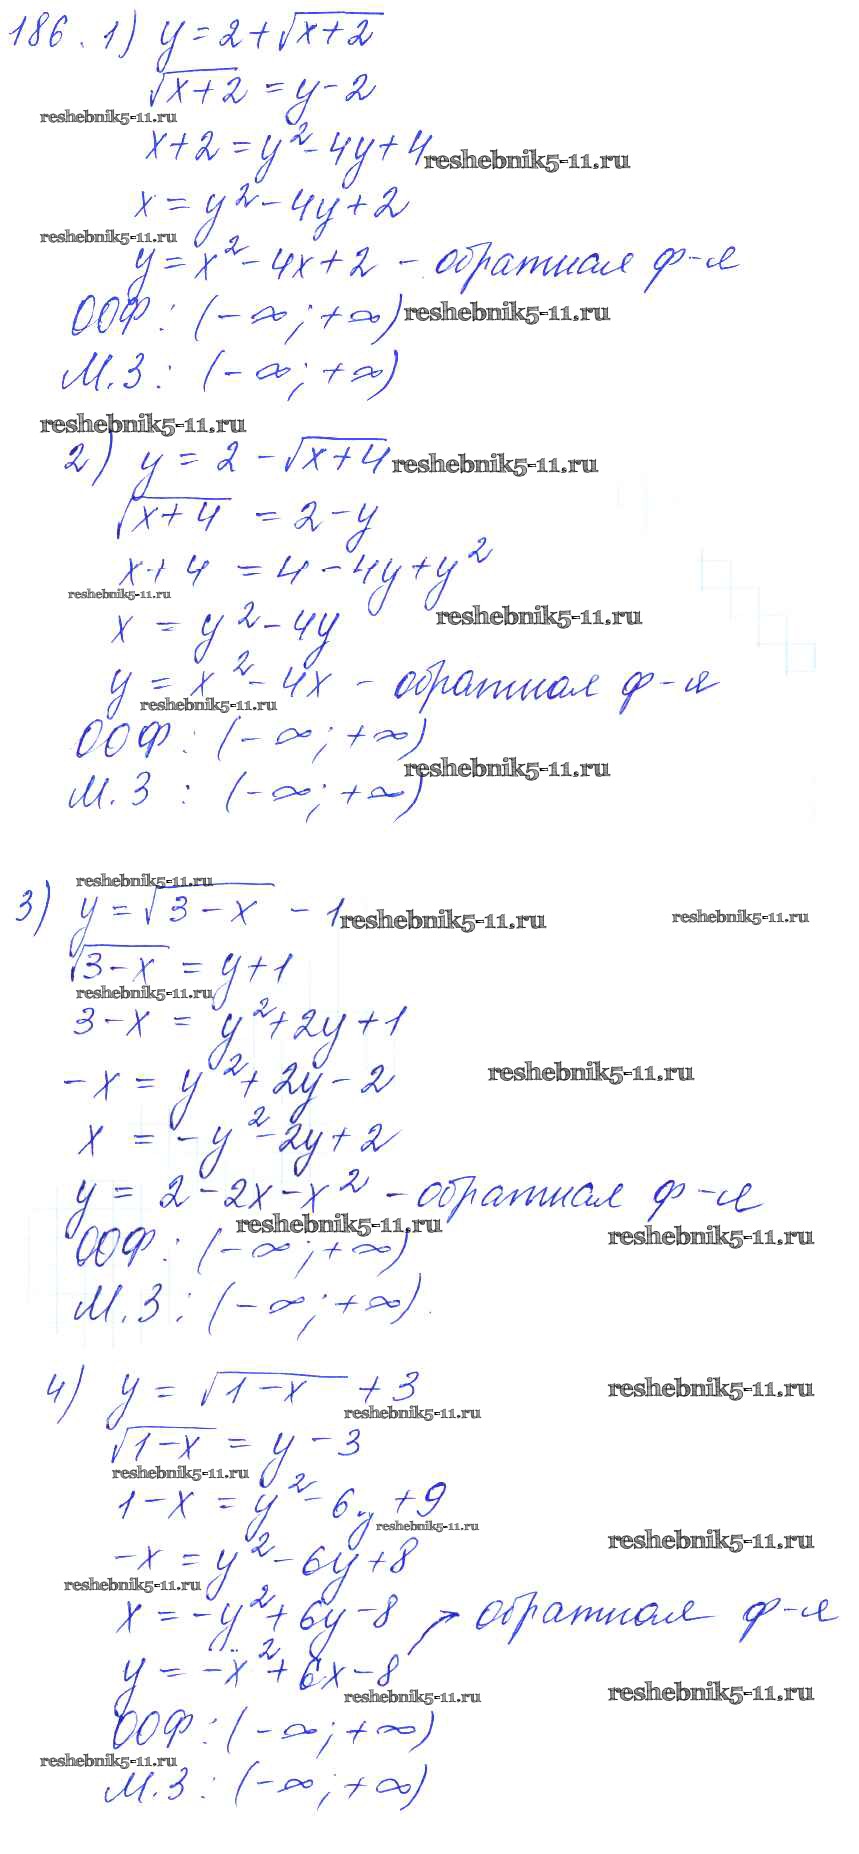 186. 1) y = 2 + √(x+2)
√(x+2) = y - 2
reshebnik5-11.ru
x + 2 = y² - 4y + 4
reshebnik5-11.ru
x = y² - 4y + 2
reshebnik5-11.ru
y = x² - 4x + 2 - обратная ф-я
ООФ: (-∞; +∞)
reshebnik5-11.ru
М.З: (-∞; +∞)
reshebnik5-11.ru
2) y = 2 - √(x+4)
reshebnik5-11.ru
√(x+4) = 2 - y
x + 4 = 4 - 4y + y²
reshebnik5-11.ru
reshebnik5-11.ru
x = y² - 4y
y = x² - 4x - обратная ф-я
reshebnik5-11.ru
ООФ: (-∞; +∞)
reshebnik5-11.ru
М.З: (-∞; +∞)
reshebnik5-11.ru
3) y = √(3-x) - 1
reshebnik5-11.ru
reshebnik5-11.ru
√(3-x) = y + 1
reshebnik5-11.ru
3 - x = y² + 2y + 1
reshebnik5-11.ru
-x = y² + 2y - 2
x = -y² - 2y + 2
y = 2 - 2x - x² - обратная ф-я
reshebnik5-11.ru
reshebnik5-11.ru
ООФ: (-∞; +∞)
М.З: (-∞; +∞).
4) y = √(1-x) + 3
reshebnik5-11.ru
reshebnik5-11.ru
√(1-x) = y - 3
reshebnik5-11.ru
1 - x = y² - 6y + 9
reshebnik5-11.ru
reshebnik5-11.ru
-x = y² - 6y + 8
reshebnik5-11.ru
x = -y² + 6y - 8 ↗ обратная ф-я
y = -x² + 6x - 8
reshebnik5-11.ru
reshebnik5-11.ru
ООФ: (-∞; +∞)
reshebnik5-11.ru
М.З: (-∞; +∞)